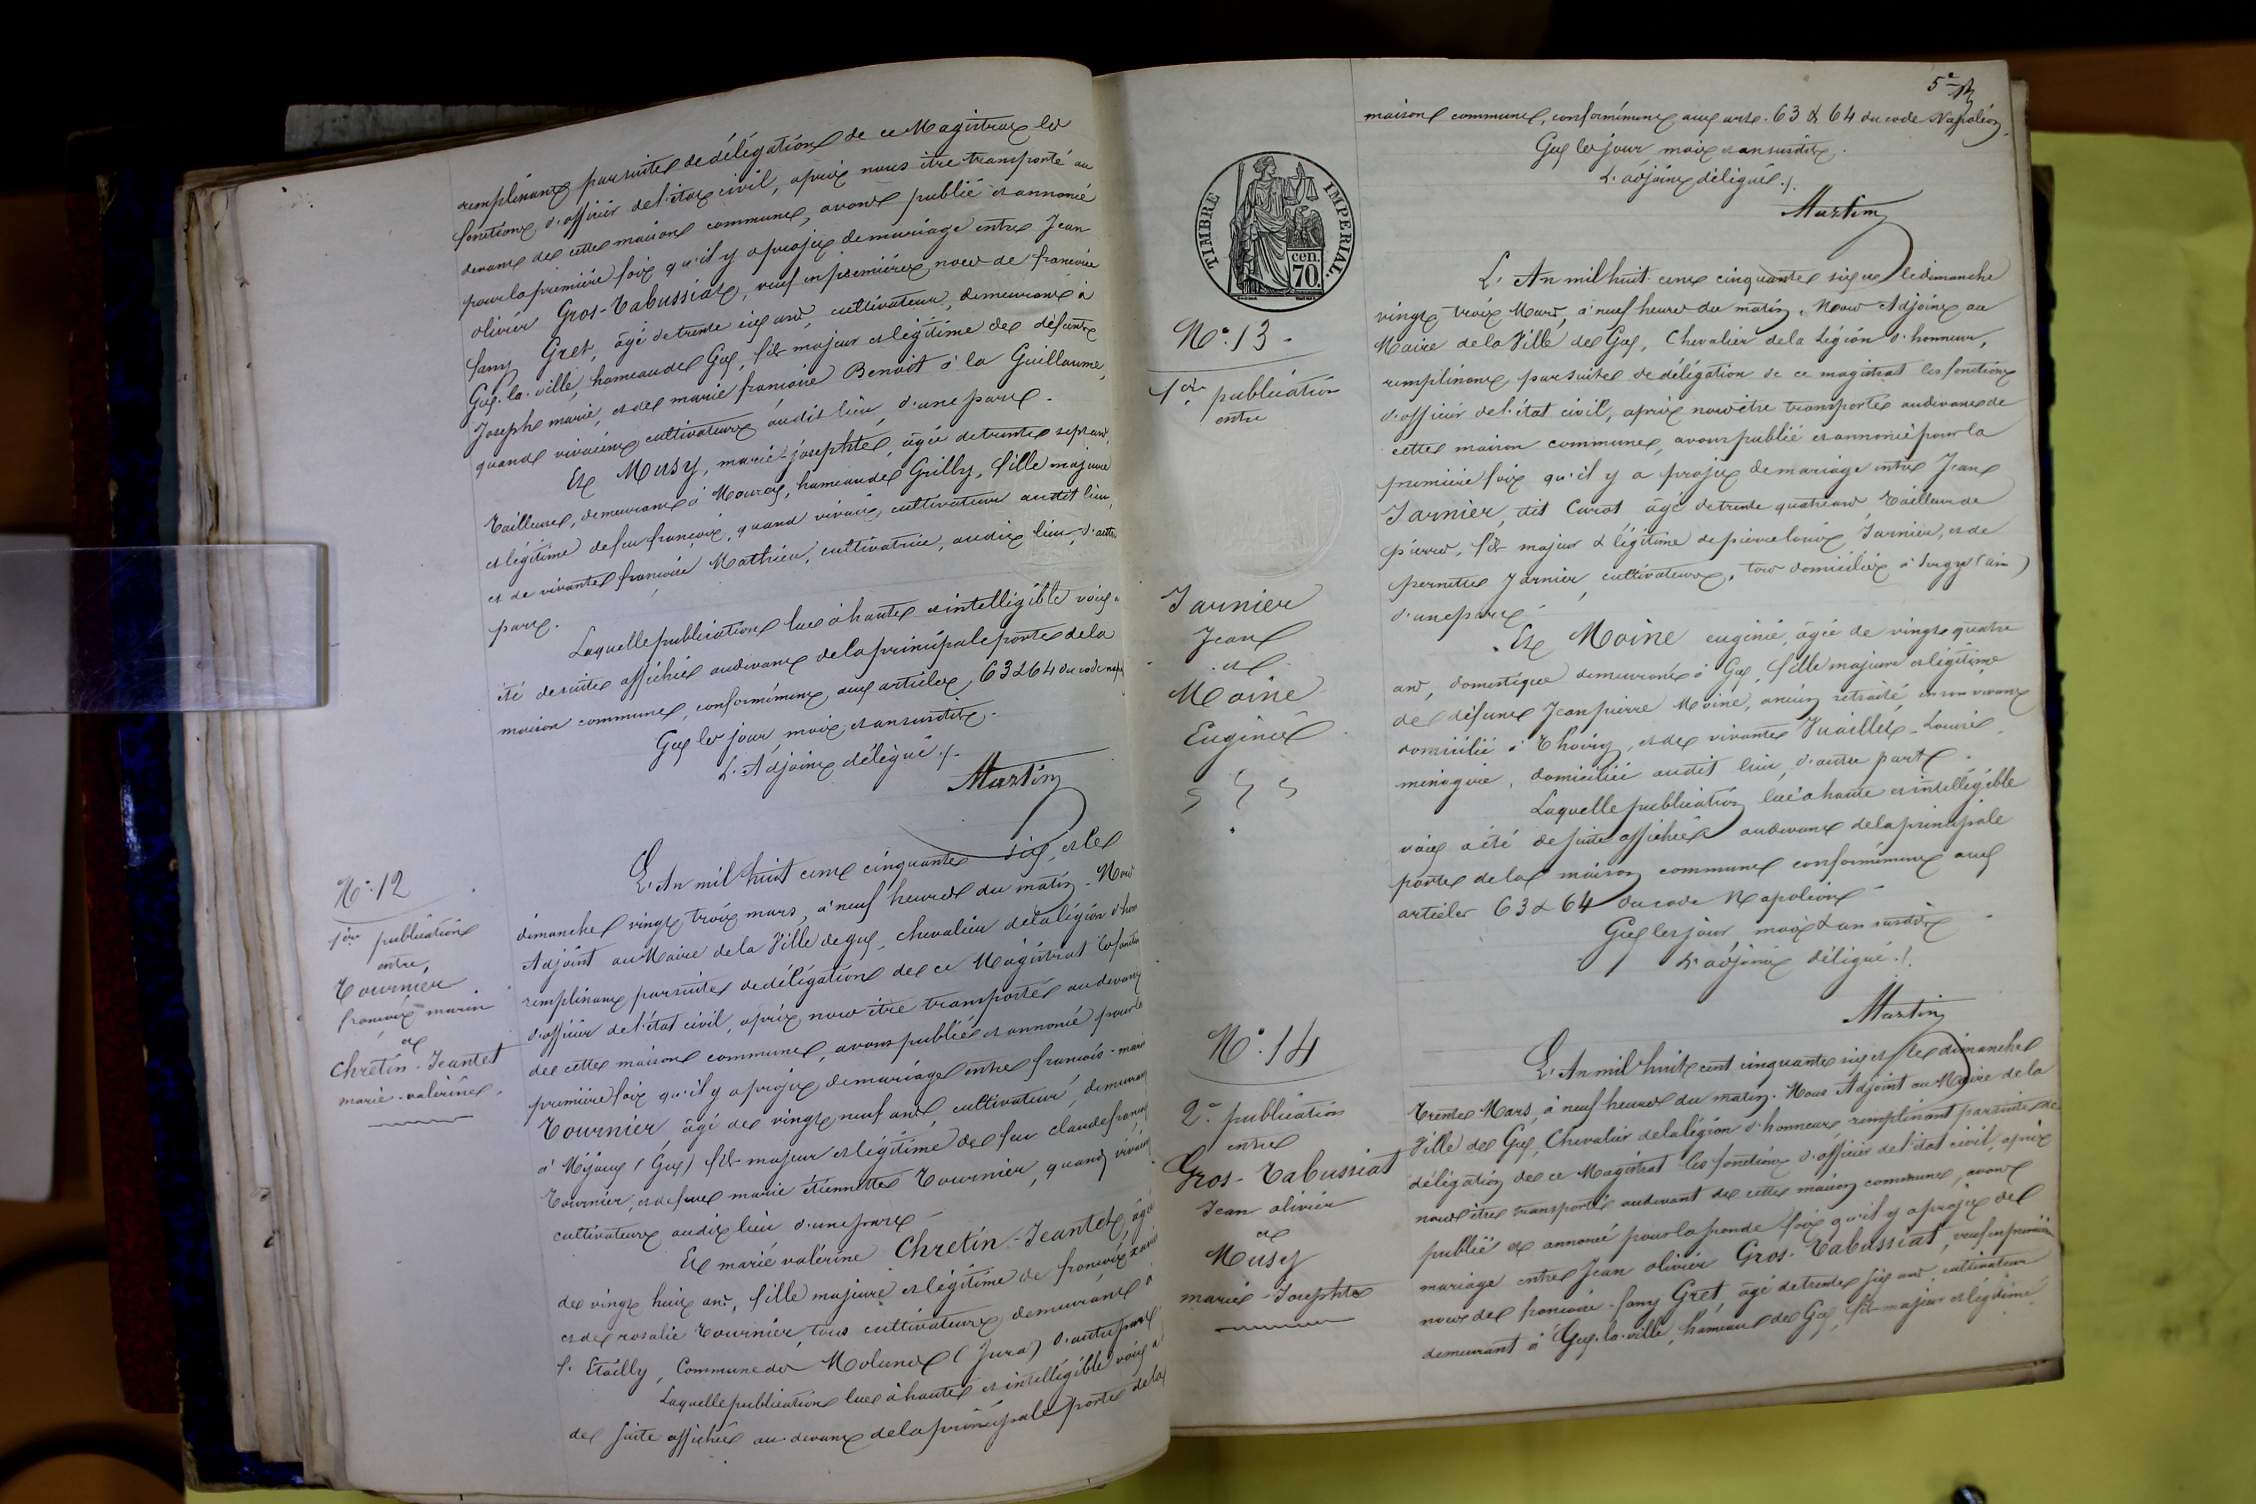 remplissant par suite de délégation de ce Magistrat les
fonctions d'officier de l'état civil, après nous être transporté au
devant de cette maison commune, avons publié et annoncé
pour la première fois qu'il y a projet de mariage entre Jean
olivier Gros-Tabussiat, veuf en premières noces de françoise
fany Gret, âgé de trente six ans, cultivateur, demeurant à
Gex-la-ville, hameau de Gex, fils majeur et légitime des défunts
Joseph marie, et de marie françoise Benoit à la Guillaume,
quand vivaient cultivateurs audit lieu, d'une part.
Et Musy, marie-josephte, âgée de trente sept ans,
Tailleuse, demeurant à Mourex, hameau de Grilly, fille majeure
et légitime de feu françois, quand vivait, cultivateur audit lieu,
et de vivante françoise Mathieu, cultivatrice, audit lieu, d'autre
part.
Laquelle publication lue à haute et intelligible voix a
été de suite affichée au devant de la principale porte de la
maison commune, conformément, aux articles, 63 & 64 du code nap
Gex les jour, mois, et an susdits.
L'Adjoint délégué ./.
Martin
N° 12
1ère publication
entre
Tournier
françois marin
et
Chretin-Jeantet
marie-valérine.
L'An mil huit cent cinquante six, et le
dimanche vingt trois mars, à neuf heures du matin. Nous
Adjoint au Maire de la Ville de gex, chevalier de la légion d'hon
remplissant par suite de délégation de ce Magistrat les fonctions
d'officier de l'état civil, après nous être transporté au devant
de cette maison commune, avons publié et annoncé pour la
première fois qu'il y a projet de mariage entre françois-marin
Tournier, âgé de vingt neuf ans, cultivateur, demeurant
à Mijoux (Gex) fils majeur et légitime de feu claude françois
Tournier, et de feue marie étiennette Tournier, quand vivaient
cultivateurs audit lieu d'une part
Et marie valérine Chretin-Jeantet, âgée
de vingt huit ans, fille majeure et légitime de françois xavier
et de rosalie Tournier, tous cultivateurs, demeurant à
l'Etailly, Commune de Molunes (Jura) d'autre part
Laquelle publication lue à haute et intelligible voix a
de suite affichée au-devant de la principale porte de la
5e
maison commune, conformément aux arts. 63 & 64 du code Napoléon.
Gex les jour mois et an susdits.
L'adjoint délégué ./.
Martin
TIMBRE IMPERIAL.
cen.
70.
N° 13.
1ère publication
entre
Jarnier
Jean
et
Moine
Eugénie
L'An mil huit cent cinquante six et le dimanche
vingt trois Mars, à neuf heures du matin, Nous Adjoint au
Maire de la Ville de Gex, Chevalier de la Légion d'honneur,
remplissant par suite de délégation de ce magistrat les fonctions
d'officier de l'état civil, après nous être transporté au devant de
cette maison commune, avons publié et annoncé pour la
première fois qu'il y a projet de mariage entre Jean
Jarnier, dit Curot âgé de trente quatre ans Tailleur de
pierres, fils majeur & légitime de pierre louis Jarnier, et de
pernette Jarnier, cultivateurs, tous domiciliés à (ain)
d'une part.
Et Moine eugénie, âgée de vingt quatre
ans, domestique demeurant à Gex, fille majeure et légitime
de défunt Jean pierre Moine, ancien retraité, en son vivant
domicilié à Thoiry, et de vivante Vuaillet Louise
ménagère, domiciliée audit lieu, d'autre part.
Laquelle publication lue à haute et intelligible
voix a été de suite affichée au devant de la principale
porte de la maison commune conformément aux
articles 63 & 64 du code Napoléon
Gex les jour mois & an susdits
L'adjoint délégué ./.
Martin
N° 14
2e publication
entre
Gros-Tabussiat
Jean olivier
et
Musy
marie-Josephte
L'An mil huit cent cinquante six et le dimanche
Trente Mars, à neuf heures du matin. Nous Adjoint au Maire de la
Ville de Gex, Chevalier de la légion d'honneur, remplissant par suite de
délégation de ce Magistrat les fonctions d'officier de l'état civil, après
nous être transporté au devant de cette maison commune, avons
publié et annoncé pour la fois qu'il y a projet de
mariage entre Jean olivier Gros-Tabussiat, veuf en premières
noces de françoise-fany Gret, âgé de trente six ans cultivateur
demeurant à Gex-la-ville, hameau de Gex, fils majeur et légitime